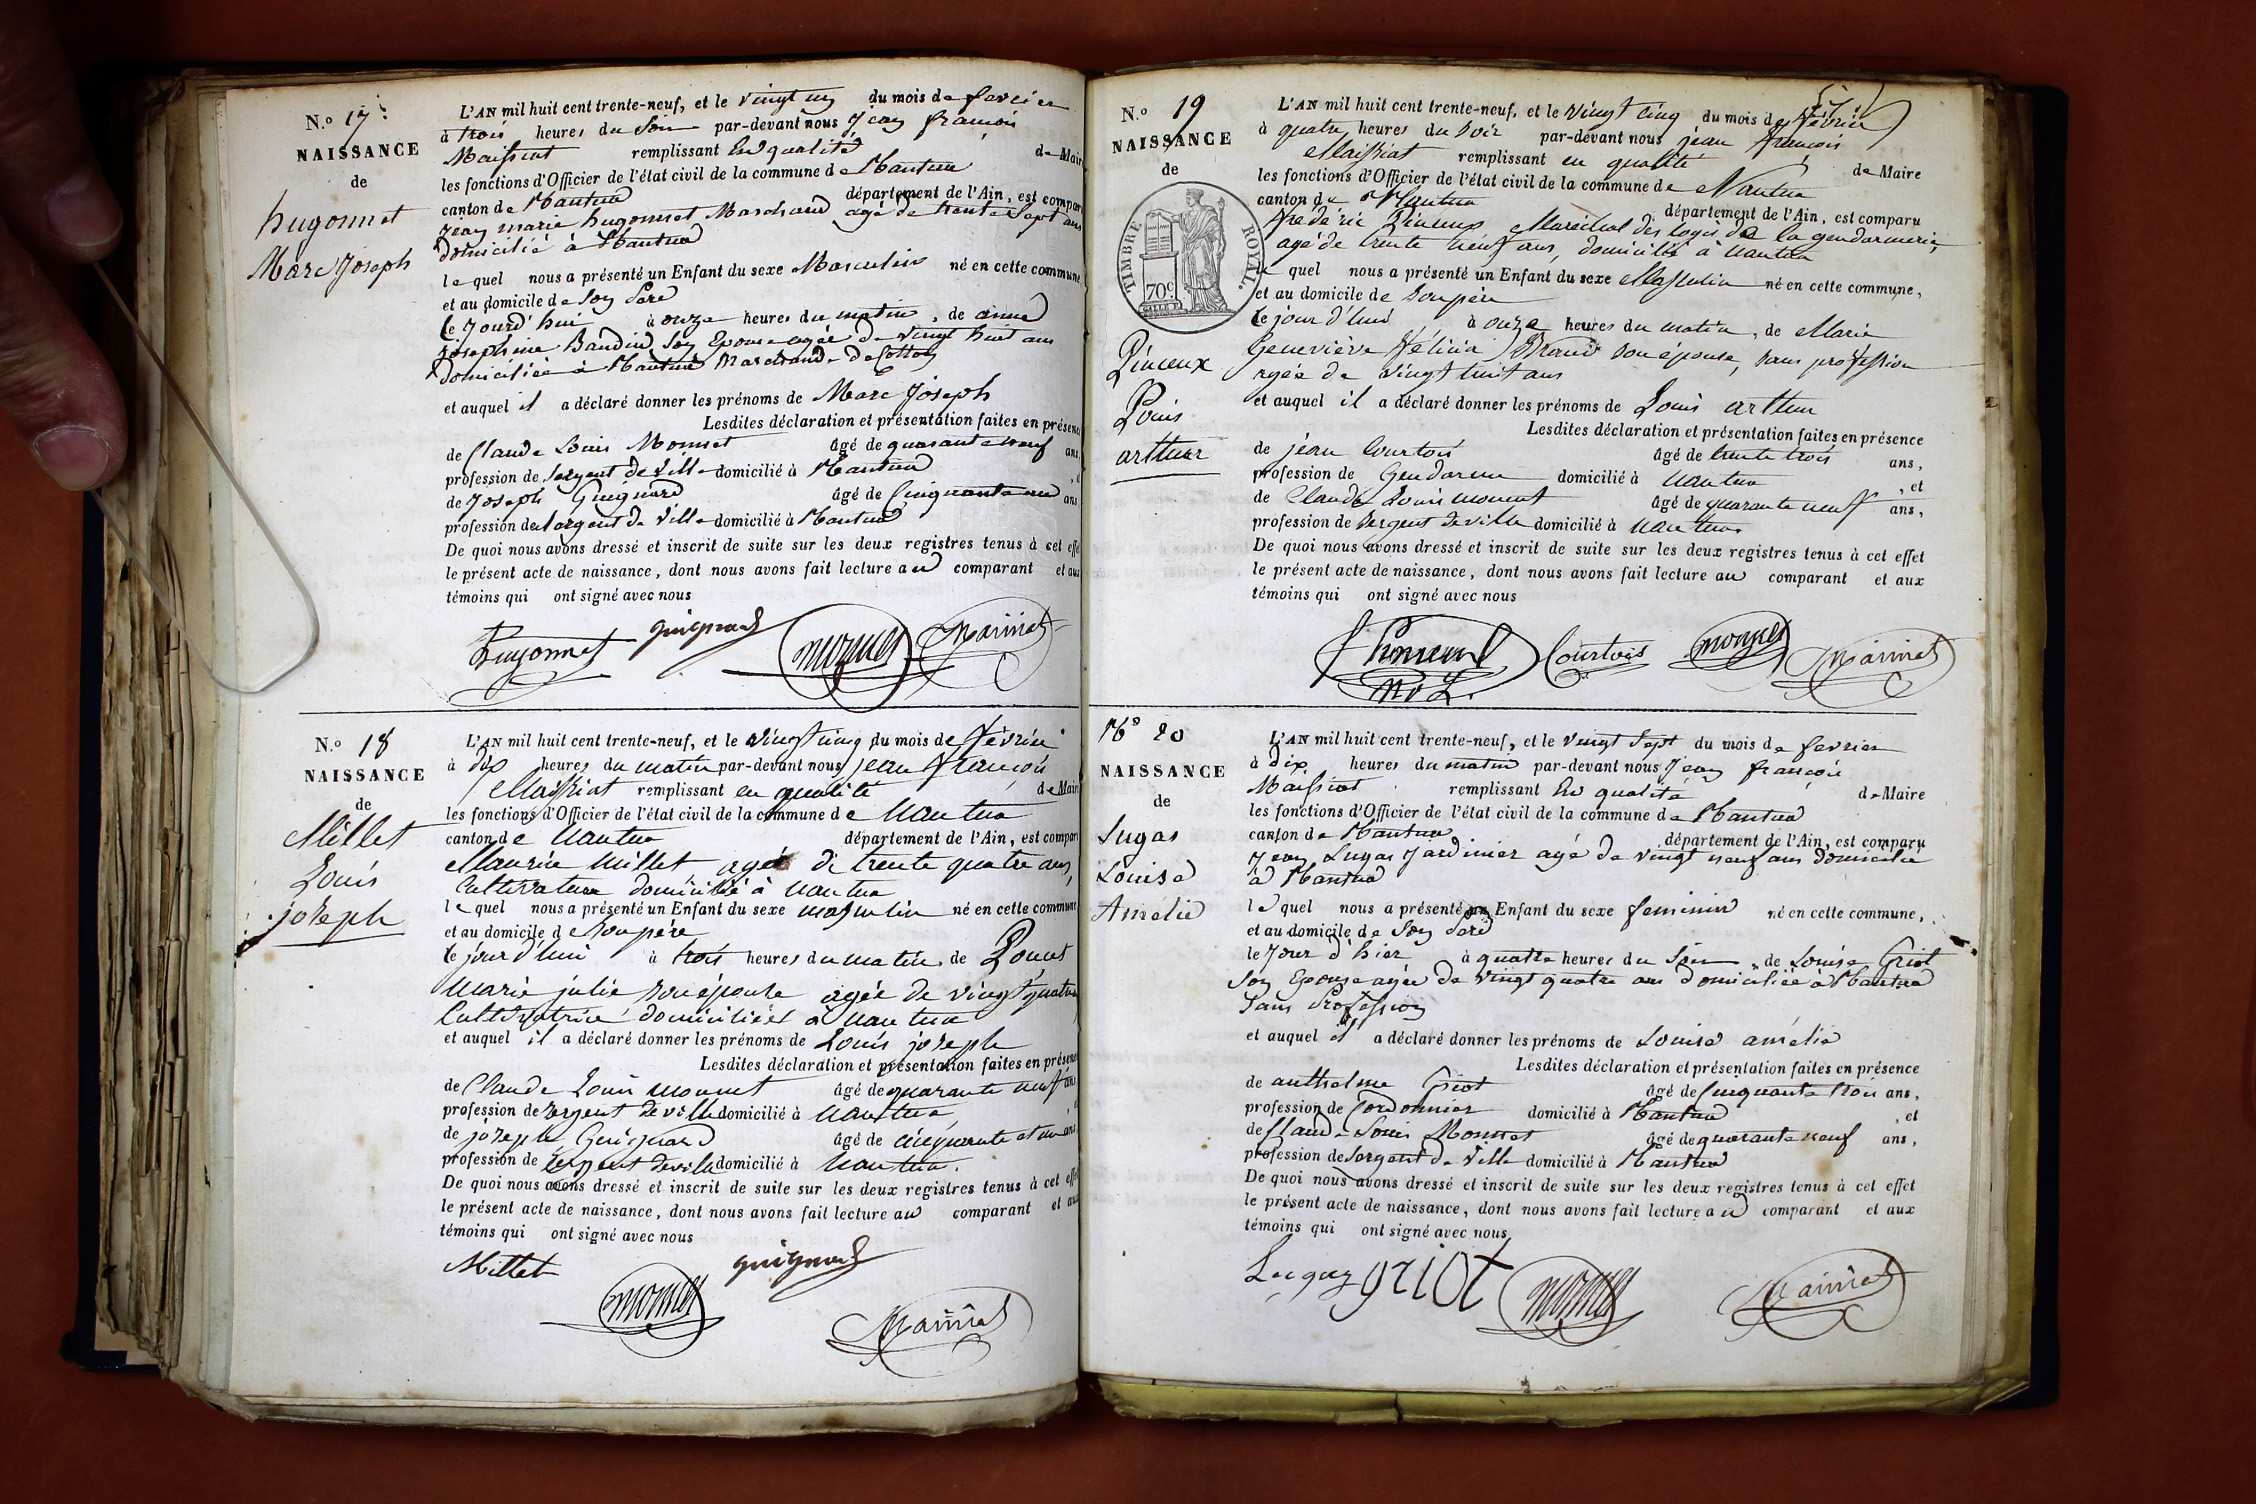 N.º 17
NAISSANCE
de
hugonnet
Marc Joseph
L'AN mil huit cent trente-neuf, et le vingt un du mois de fevrier
à trois heures du Soir par-devant nous Jean françois
Maissiat remplissant En qualité de Maire
les fonctions d'Officier de l'état civil de la commune de Nantua
canton de Nantua département de l'Ain, est comparu
Jean marie hugonnet Marchand agé de trente Sept ans
Domicilié à Nantua
le quel nous a présenté un Enfant du sexe Masculin né en cette commune,
et au domicile de Son Pere
le Jourd'hui à onze heures du matin, de anne
josephine Baudin Son Epouse agée de vingt huit ans
Domiciliée à Nantua Marchande
et auquel il a déclaré donner les prénoms de Marc Joseph
Lesdites déclaration et présentation faites en présence
de Claude Louis Monnet âgé de quarante neuf ans,
profession de Sergent de Ville domicilié à Nantua
de Joseph Guignard âgé de Cinquante un ans
profession de Sergent de Ville domicilié à Nantua
De quoi nous avons dressé et inscrit de suite sur les deux registres tenus à cet effet
le présent acte de naissance, dont nous avons fait lecture au comparant et aux
témoins qui ont signé avec nous
hugonnet guignard monnet
N.º 18
NAISSANCE
de
Millet
Louis
joseph
L'AN mil huit cent trente-neuf, et le vingt cinq du mois de février
à dix heures du matin par-devant nous jean françois
Maissiat remplissant en qualité de Maire
les fonctions d'Officier de l'état civil de la commune de Nantua
canton de Nantua département de l'Ain, est comparu
Maurice Millet agé de trente quatre ans,
Cultivateur domicilié à Nantua
le quel nous a présenté un Enfant du sexe masculin né en cette commune
et au domicile de son père
le jour d'hui à trois heures du matin de
Marie julie son épouse agée de vingt quatre
Cultivatrice domiciliée à Nantua
et auquel il a déclaré donner les prénoms de Louis joseph
Lesdites déclaration et présentation faites en présence
de Claude Louis monnet âgé de quarante neuf ans
profession de sergent de ville domicilié à Nantua,
de joseph Guignard âgé de cinquante et un ans
profession de sergent de ville domicilié à Nantua.
De quoi nous avons dressé et inscrit de suite sur les deux registres tenus à cet effet
le présent acte de naissance, dont nous avons fait lecture au comparant et aux
témoins qui ont signé avec nous
Millet guignard
monnet
N.º 19
NAISSANCE
de
TIMBRE ROYAL.
70c
Louis
arthur
L'AN mil huit cent trente-neuf, et le vingt cinq du mois de février
à quatre heures du soir par-devant nous jean françois
Maissiat remplissant en qualité de Maire
les fonctions d'Officier de l'état civil de la commune de Nantua
canton de Nantua département de l'Ain, est comparu
frédéric Maréchal des logis de la gendarmerie,
agé de trente neuf ans, domicilié à Nantua
le quel nous a présenté un Enfant du sexe Masculin né en cette commune,
et au domicile de son père
le jour d'hui à onze heures du matin, de Marie
Geneviève Félicia son épouse, sans profession
agée de vingt huit ans
et auquel il a déclaré donner les prénoms de Louis arthur
Lesdites déclaration et présentation faites en présence
de jean Courtois âgé de trente trois ans,
profession de Gendarme domicilié à Nantua, et
de Claude Louis monnet âgé de quarante neuf ans,
profession de sergent de ville domicilié à Nantua
De quoi nous avons dressé et inscrit de suite sur les deux registres tenus à cet effet
le présent acte de naissance, dont nous avons fait lecture au comparant et aux
témoins qui ont signé avec nous
Courtois monnet
Nº 20
NAISSANCE
de
Lugas
Louise
Amélie
L'AN mil huit cent trente-neuf, et le vingt Sept du mois de fevrier
à dix heures du matin par-devant nous Jean françois
Maissiat remplissant En qualité de Maire
les fonctions d'Officier de l'état civil de la commune de Nantua
canton de Nantua département de l'Ain, est comparu
Jean Lugas Jardinier agé de vingt neuf ans domicilié
à Nantua
le quel nous a présenté un Enfant du sexe feminin né en cette commune,
et au domicile de Son Pere
le Jour d'hier à quatre heures du Soir, de Louise Griot
Son Epouse agée de vingt quatre ans Domiciliée à Nantua
Sans Profession
et auquel il a déclaré donner les prénoms de Louise amélie
Lesdites déclaration et présentation faites en présence
de anthelme Griot âgé de Cinquante trois ans,
profession de Cordonnier domicilié à Nantua, et
de Claude Louis Monnet âgé de quarante neuf ans,
profession de Sergent de Ville domicilié à Nantua
De quoi nous avons dressé et inscrit de suite sur les deux registres tenus à cet effet
le présent acte de naissance, dont nous avons fait lecture au comparant et aux
témoins qui ont signé avec nous
griot monnet